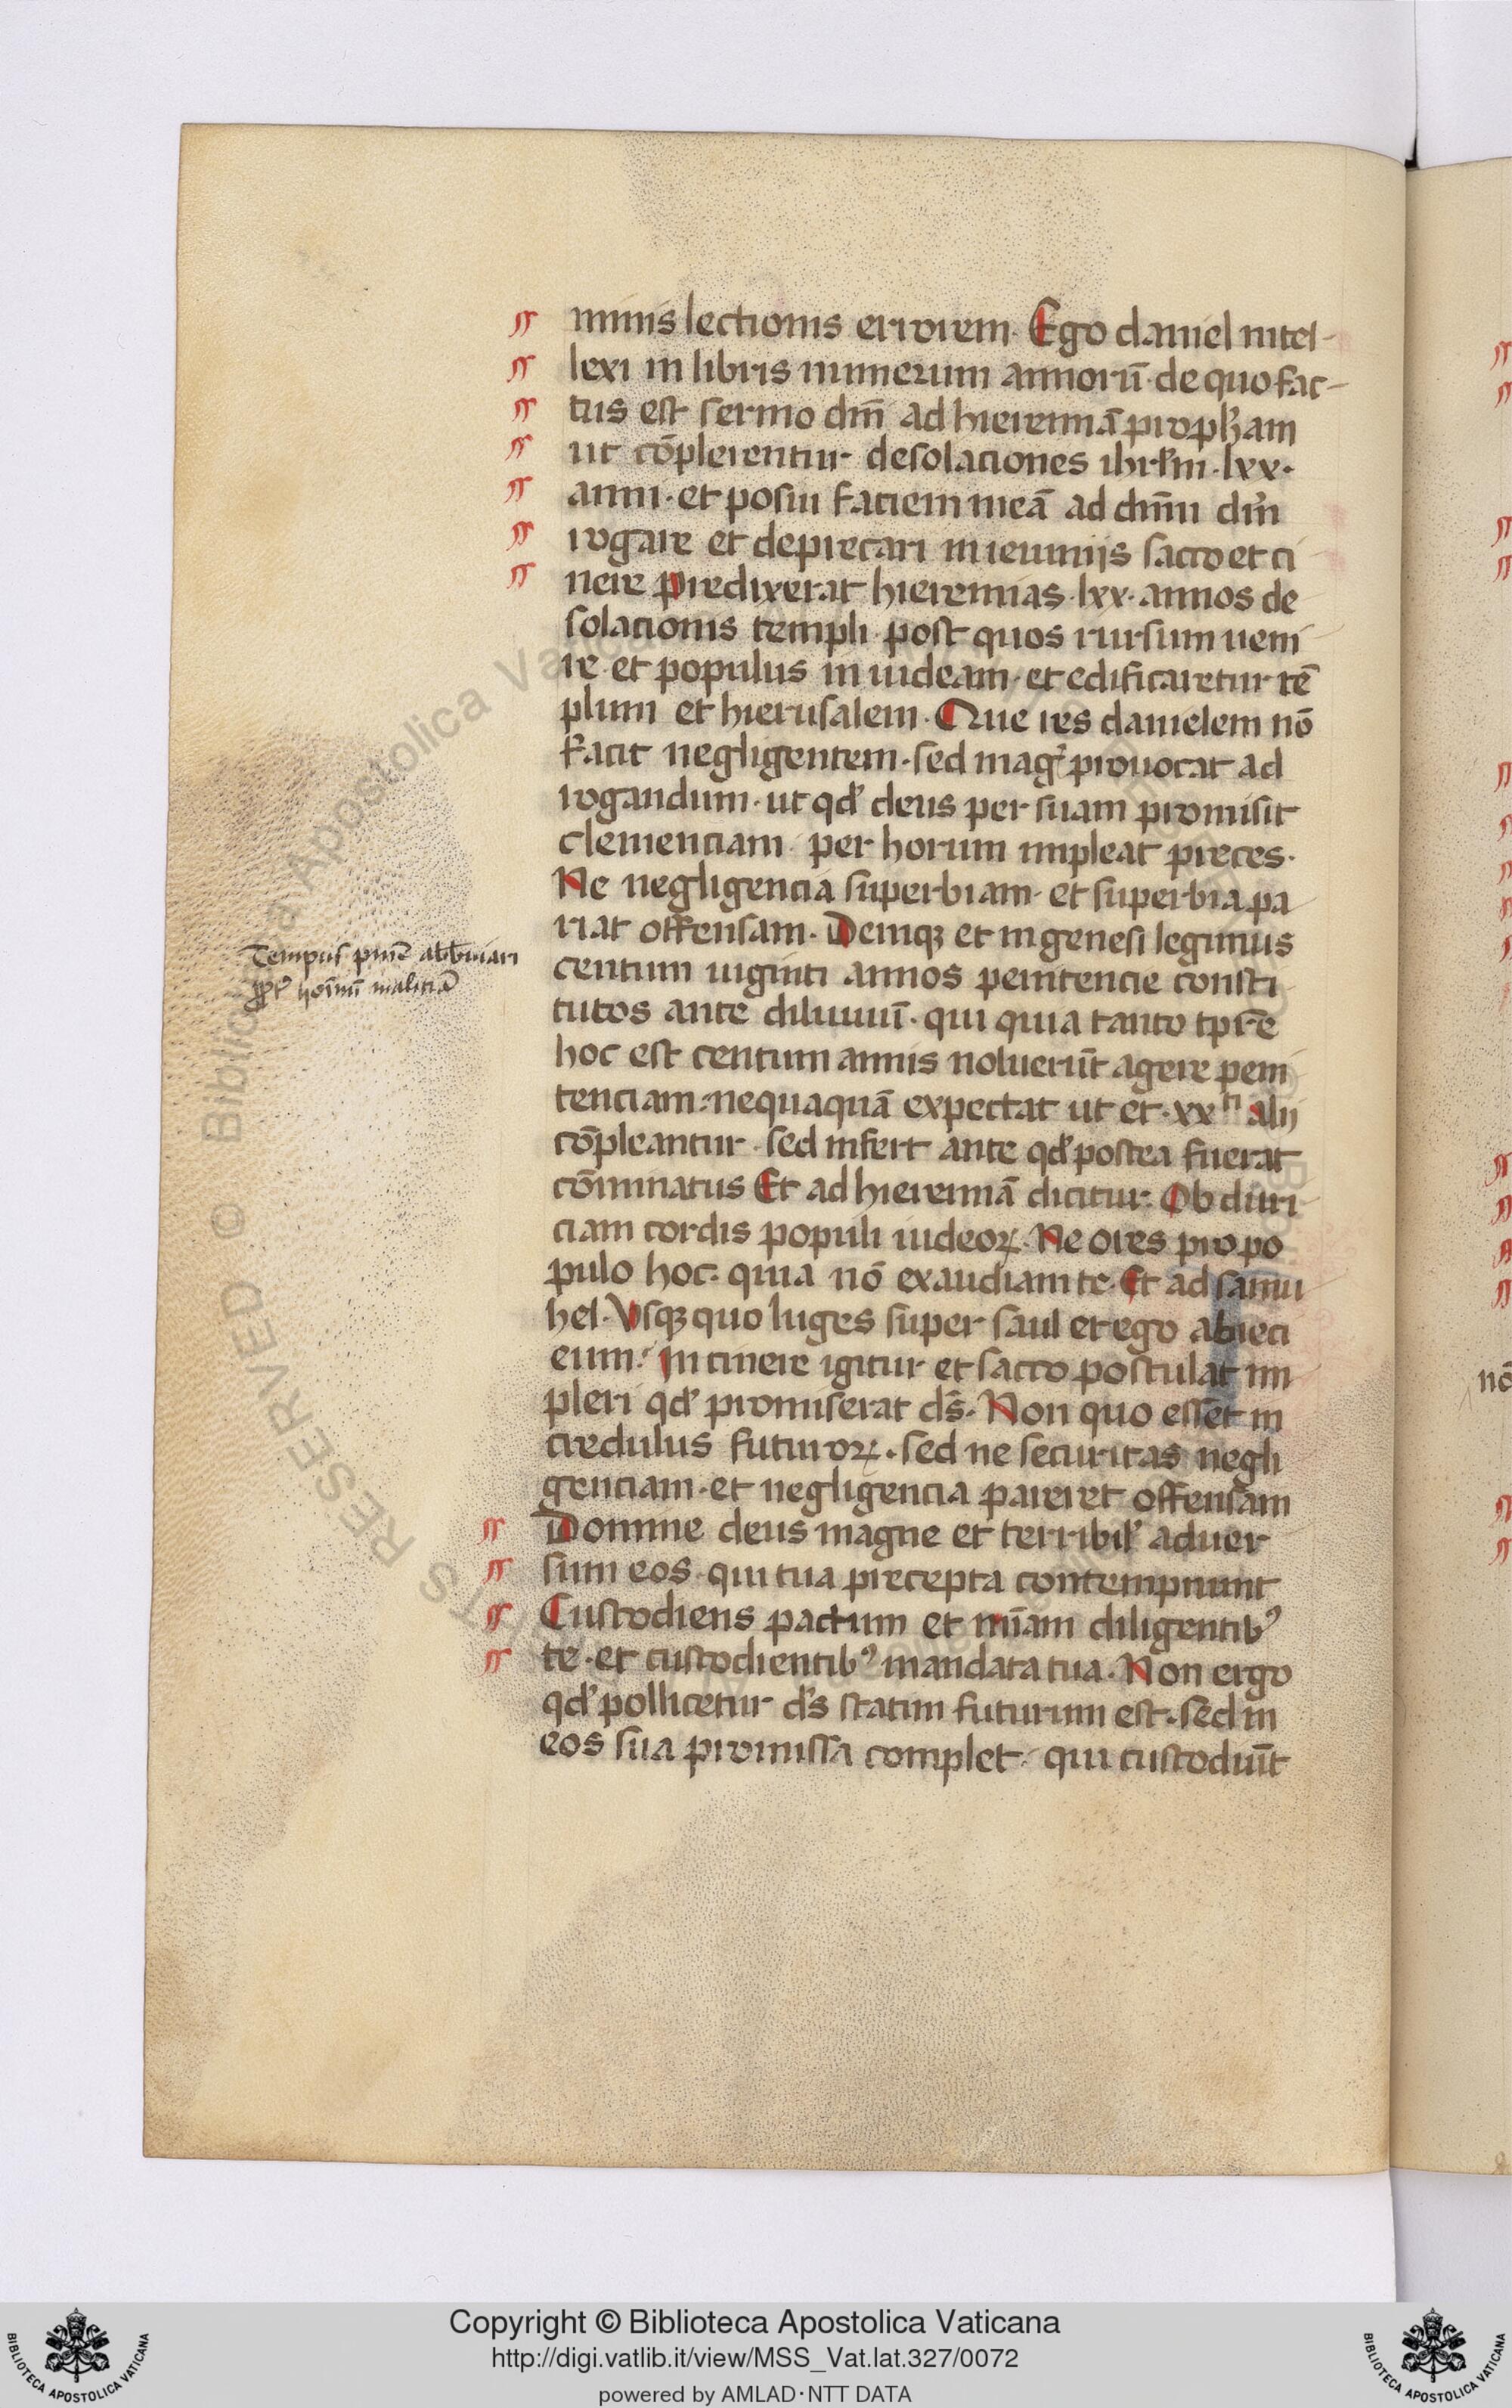 minis lectionis errorem. Ego daniel intel-
lexi in libris numerum annorū. de quo fac-
tus est sermo dnī ad hieremiā prophꝫam
ut cōplerentur desolaciones ihrl̄m. lxx.
anni. et posui faciem meā ad dn̄m dm̄
rogare et deprecari in ieiuniis sacco et ci
nere Predixerat hieremias. lxx. annos de
solacionis templi post quos rursum ueni
re et populus in iudeam. et edificaretur tē
plum et hierusalem. Que res danielem nō
facit negligentem. sed mag̕ prouocat ad
rogandum. ut qd̕ deus per suam promisit
clemenciam per horum impleat preces.
Ne negligencia superbiam. et superbia pa
riat offensam. Deniqꝫ et in genesi legimus
centum uiginti annos penitencie consti
tutos ante diluuiū. qui quia tanto tp̄re
hoc est centum annis noluerūt agere peni
tenciam. nequaquā expectat ut et. xx ti alij
cōpleantur. sed infert ante qd̕ postea fuerat
cōminatus Et ad hieremiā dicitur. Ob duri
ciam cordis populi iudeoꝝ. Ne ores pro po
pulo hoc. quia nō exaudiam te. Et ad samu
hel. Vsqꝫ quo luges super saul et ego abieci
eum. In cinere igitur et sacco postulat im
pleri qd̕ promiserat ds̄. Non quo esset in
credulus futuroꝝ. sed ne securitas negli
genciam. et negligencia pareret offensam
Domine deus magne et terribil̕ aduer
sum eos. qui tua precepta contempnunt
Custodiens pactum et mīam diligentibꝰ
te. et custodientibꝰ mandata tua. Non ergo
qd̕ pollicetur ds̄ statim futurum est. sed in
eos sua promissa complet. qui custodiūt
Tempus pnīe abbreuiari
ꝓpt̕ hoīnū maliciā
nō
Biblioteca Apostolica Vaticana
RESERVED ©
Copyright © Biblioteca Apostolica Vaticana
http://digi.vatlib.it/view/MSS_Vat.lat.327/0072
powered by AMLAD·NTT DATA
BIBLIOTECA APOSTOLICA VATICANA
BIBLIOTECA APOSTOLICA VATICANA